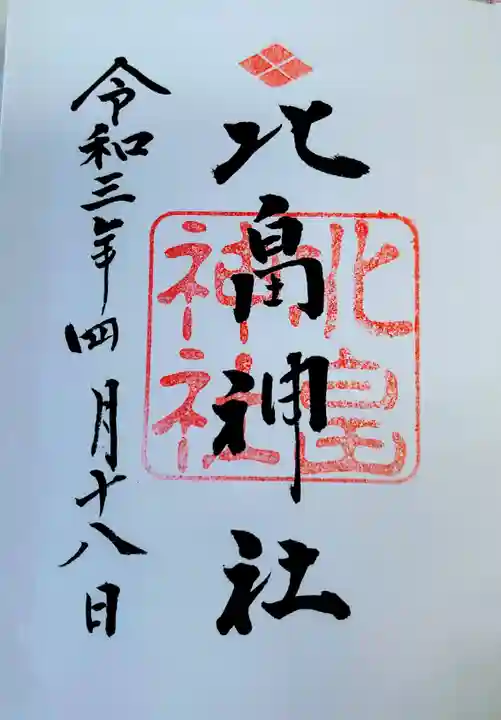 北畠神社
北畠
神社
令和三年四月十八日